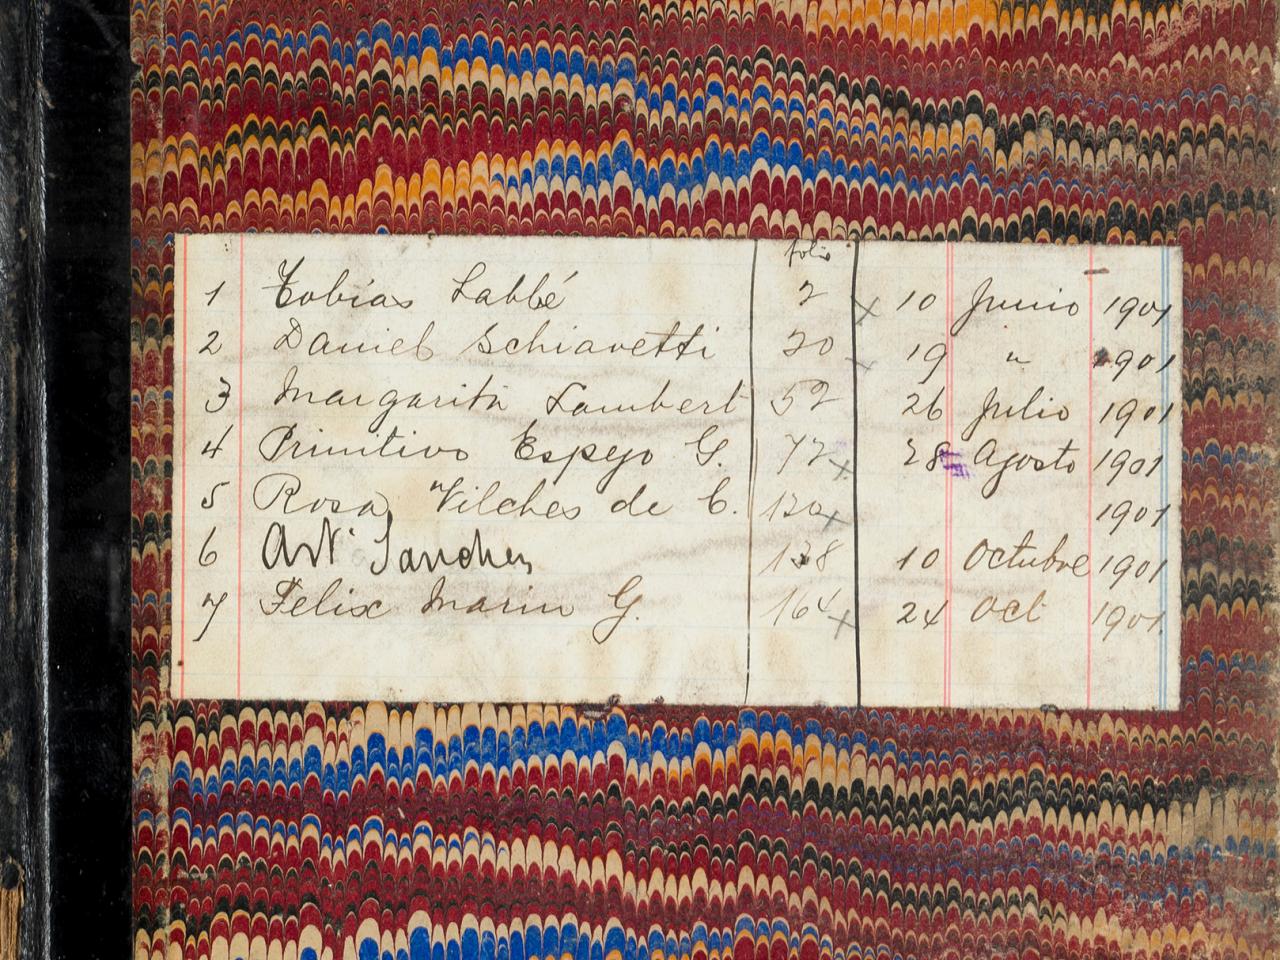 folio
1 Tobias Labbé 2 x 10 Junio 1901
2 Daniel Schiavetti 20 x 19 " 1901
3 Margarita Lambert 52 26 Julio 1901
4 Primitivo Espejo G. 72 x 28 Agosto 1901
5 Rosa Vilches de C. 120 x 1901
6 Art Sanchez 138 10 Octubre 1901
7 Felix Marin G. 164 x 24 Oct 1901